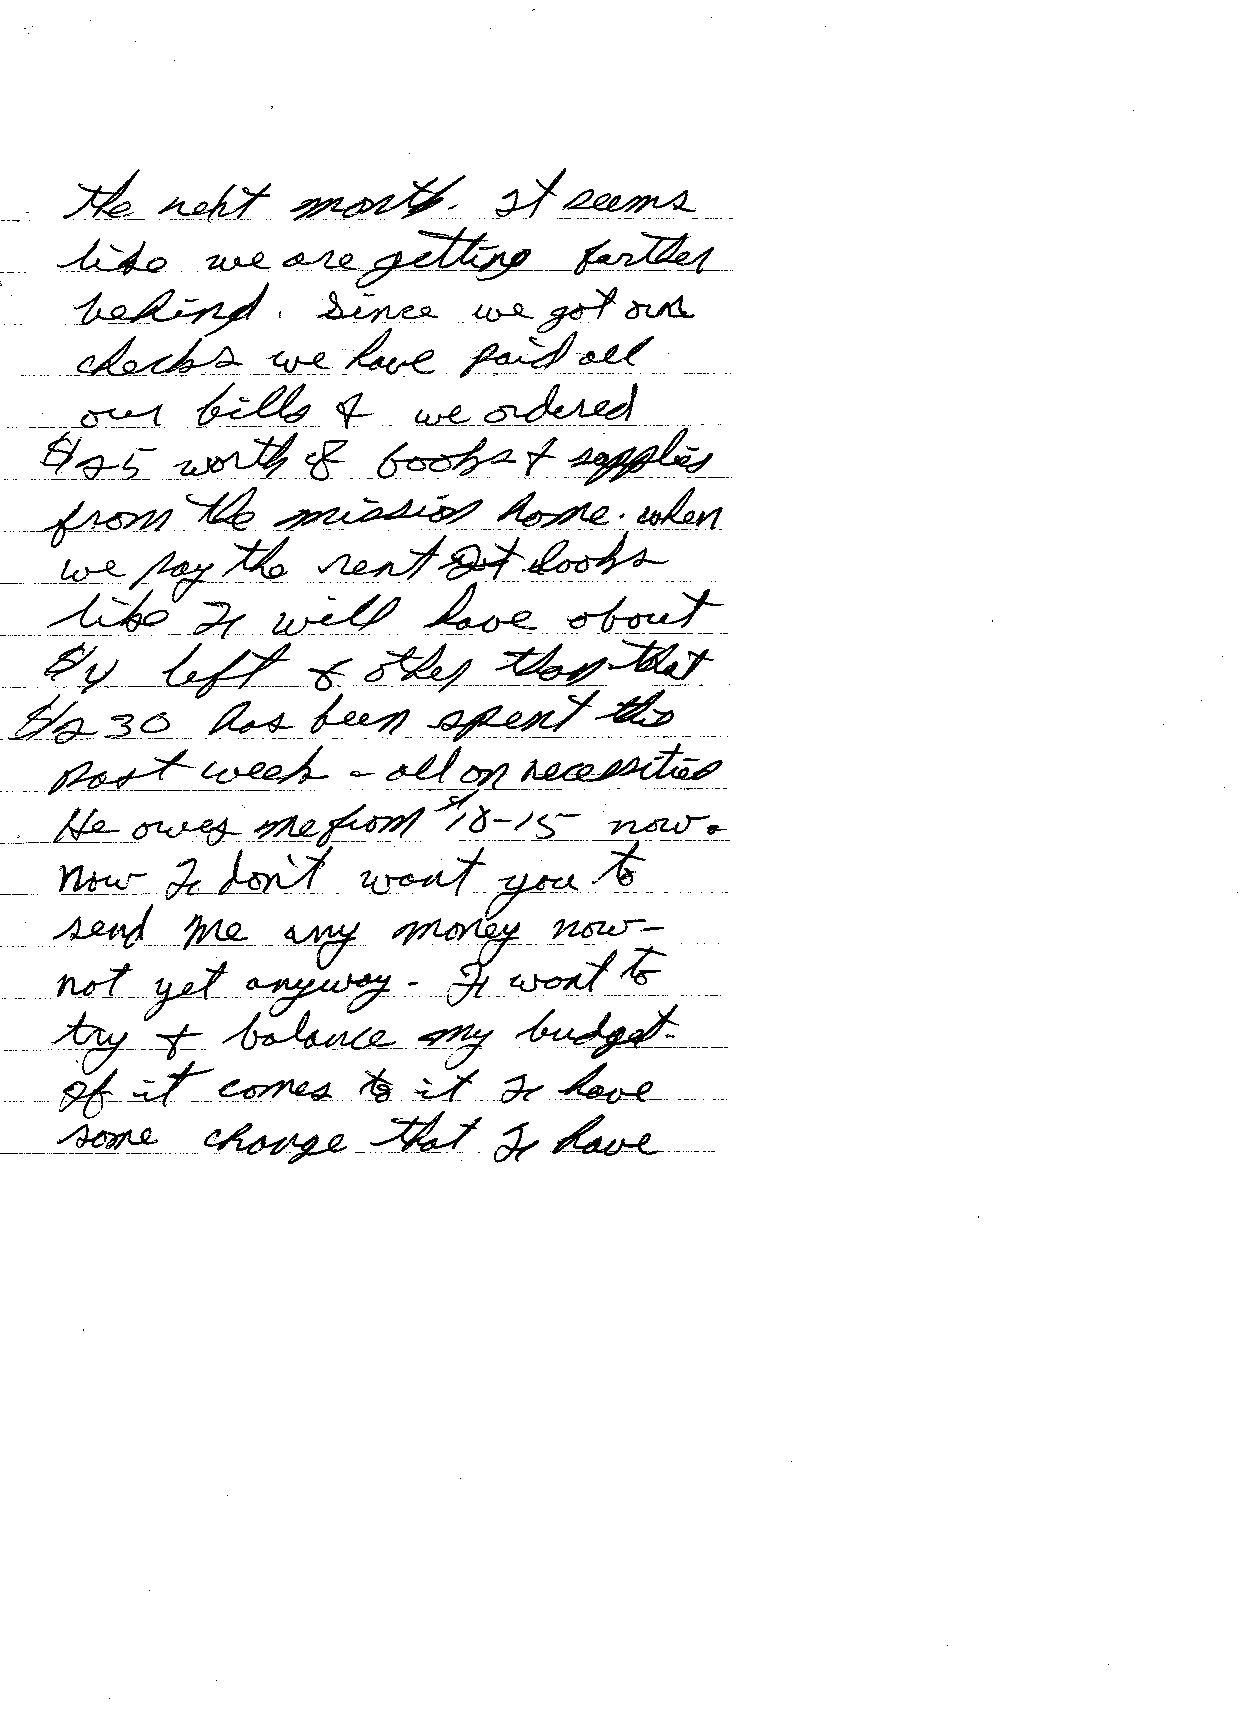 the next month. It seems
like we are getting farther
behind. Since we got our
checks we have paid all
our bills & we ordered
$25 worth of books & supplies
from the mission home. when
we pay the rent It looks
like I will have about
$4 left & other than that
$230 has been spent this
past week - all on necessities
He owes me from $10-15 now.
Now I don't want you to
send me any money now-
not yet anyway - I want to
try & balance my budget.
If it comes to it I have
some change that I have